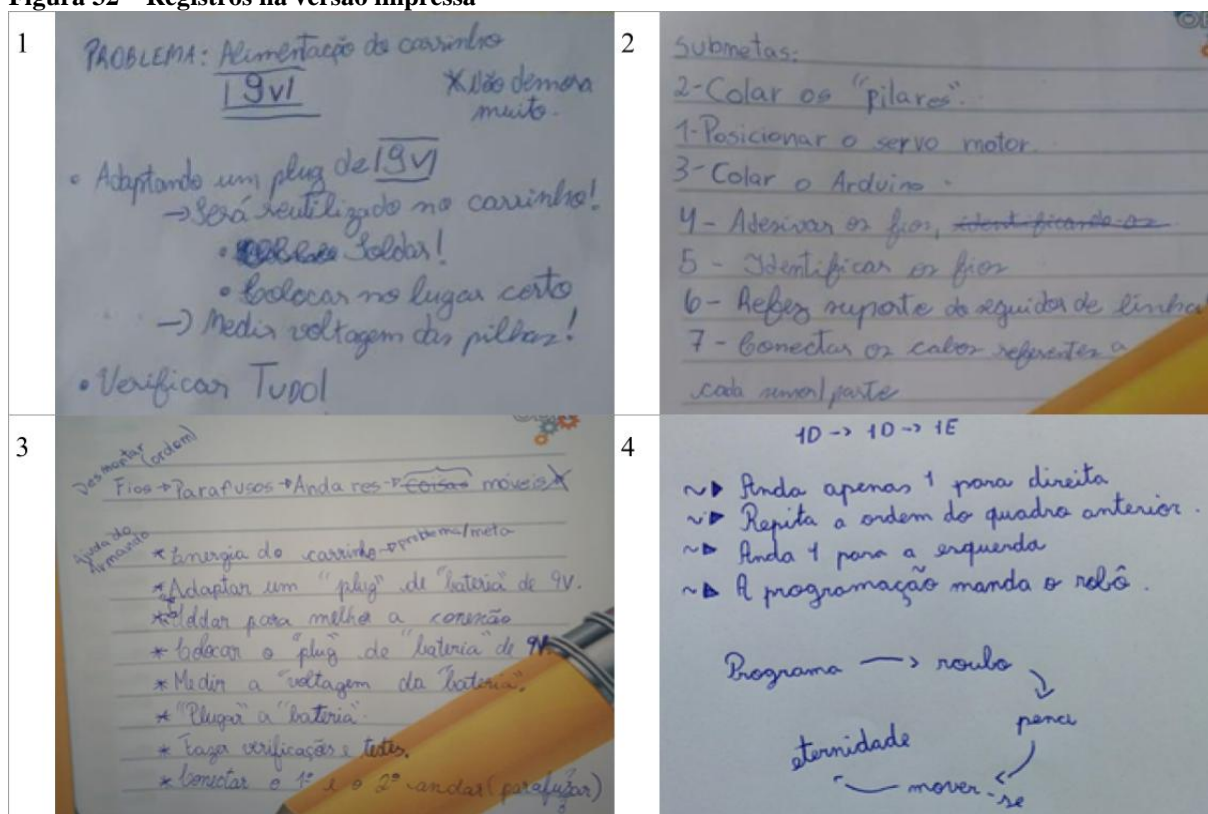 Figura 32 – Registros na versão impressa
1
PROBLEMA: Alimentação do carrinho
9v
* Não demora
muito.
• Adaptando um plug de 9v
→ Será reutilizado no carrinho!
• Soldar!
• Colocar no lugar certo
→ Medir voltagem das pilhas!
• Verificar TUDO!
2
Submetas:
2-Colar os "pilares".
1-Posicionar o servo motor
3-Colar o Arduino.
4- Adesivar os fios, identificando os
5- Identificar os fios
6- Refez suporte do seguidor de linha
7- Conectar os cabos referentes a
cada parte
3
Desmontar (ordem)
Fios → Parafusos → Andares → Coisas móveis
Ajuda do
Armando
* Energia do carrinho → problema/meta
* Adaptar um "plug" de "bateria" de 9V.
* Soldar para melhor a conexão
* Colocar o "plug" de "bateria" de 9V.
* Medir a "voltagem da bateria".
* "Plugar" a "bateria".
* Fazer verificações e testes.
* Conectar o 1º e o 2º andar (parafuzar)
4
1D → 1D → 1E
Anda apenas 1 para direita
Repita a ordem do quadro anterior.
Anda 1 para a esquerda
A programação manda o robô.
Programa → roubo
eternidade
mover-se